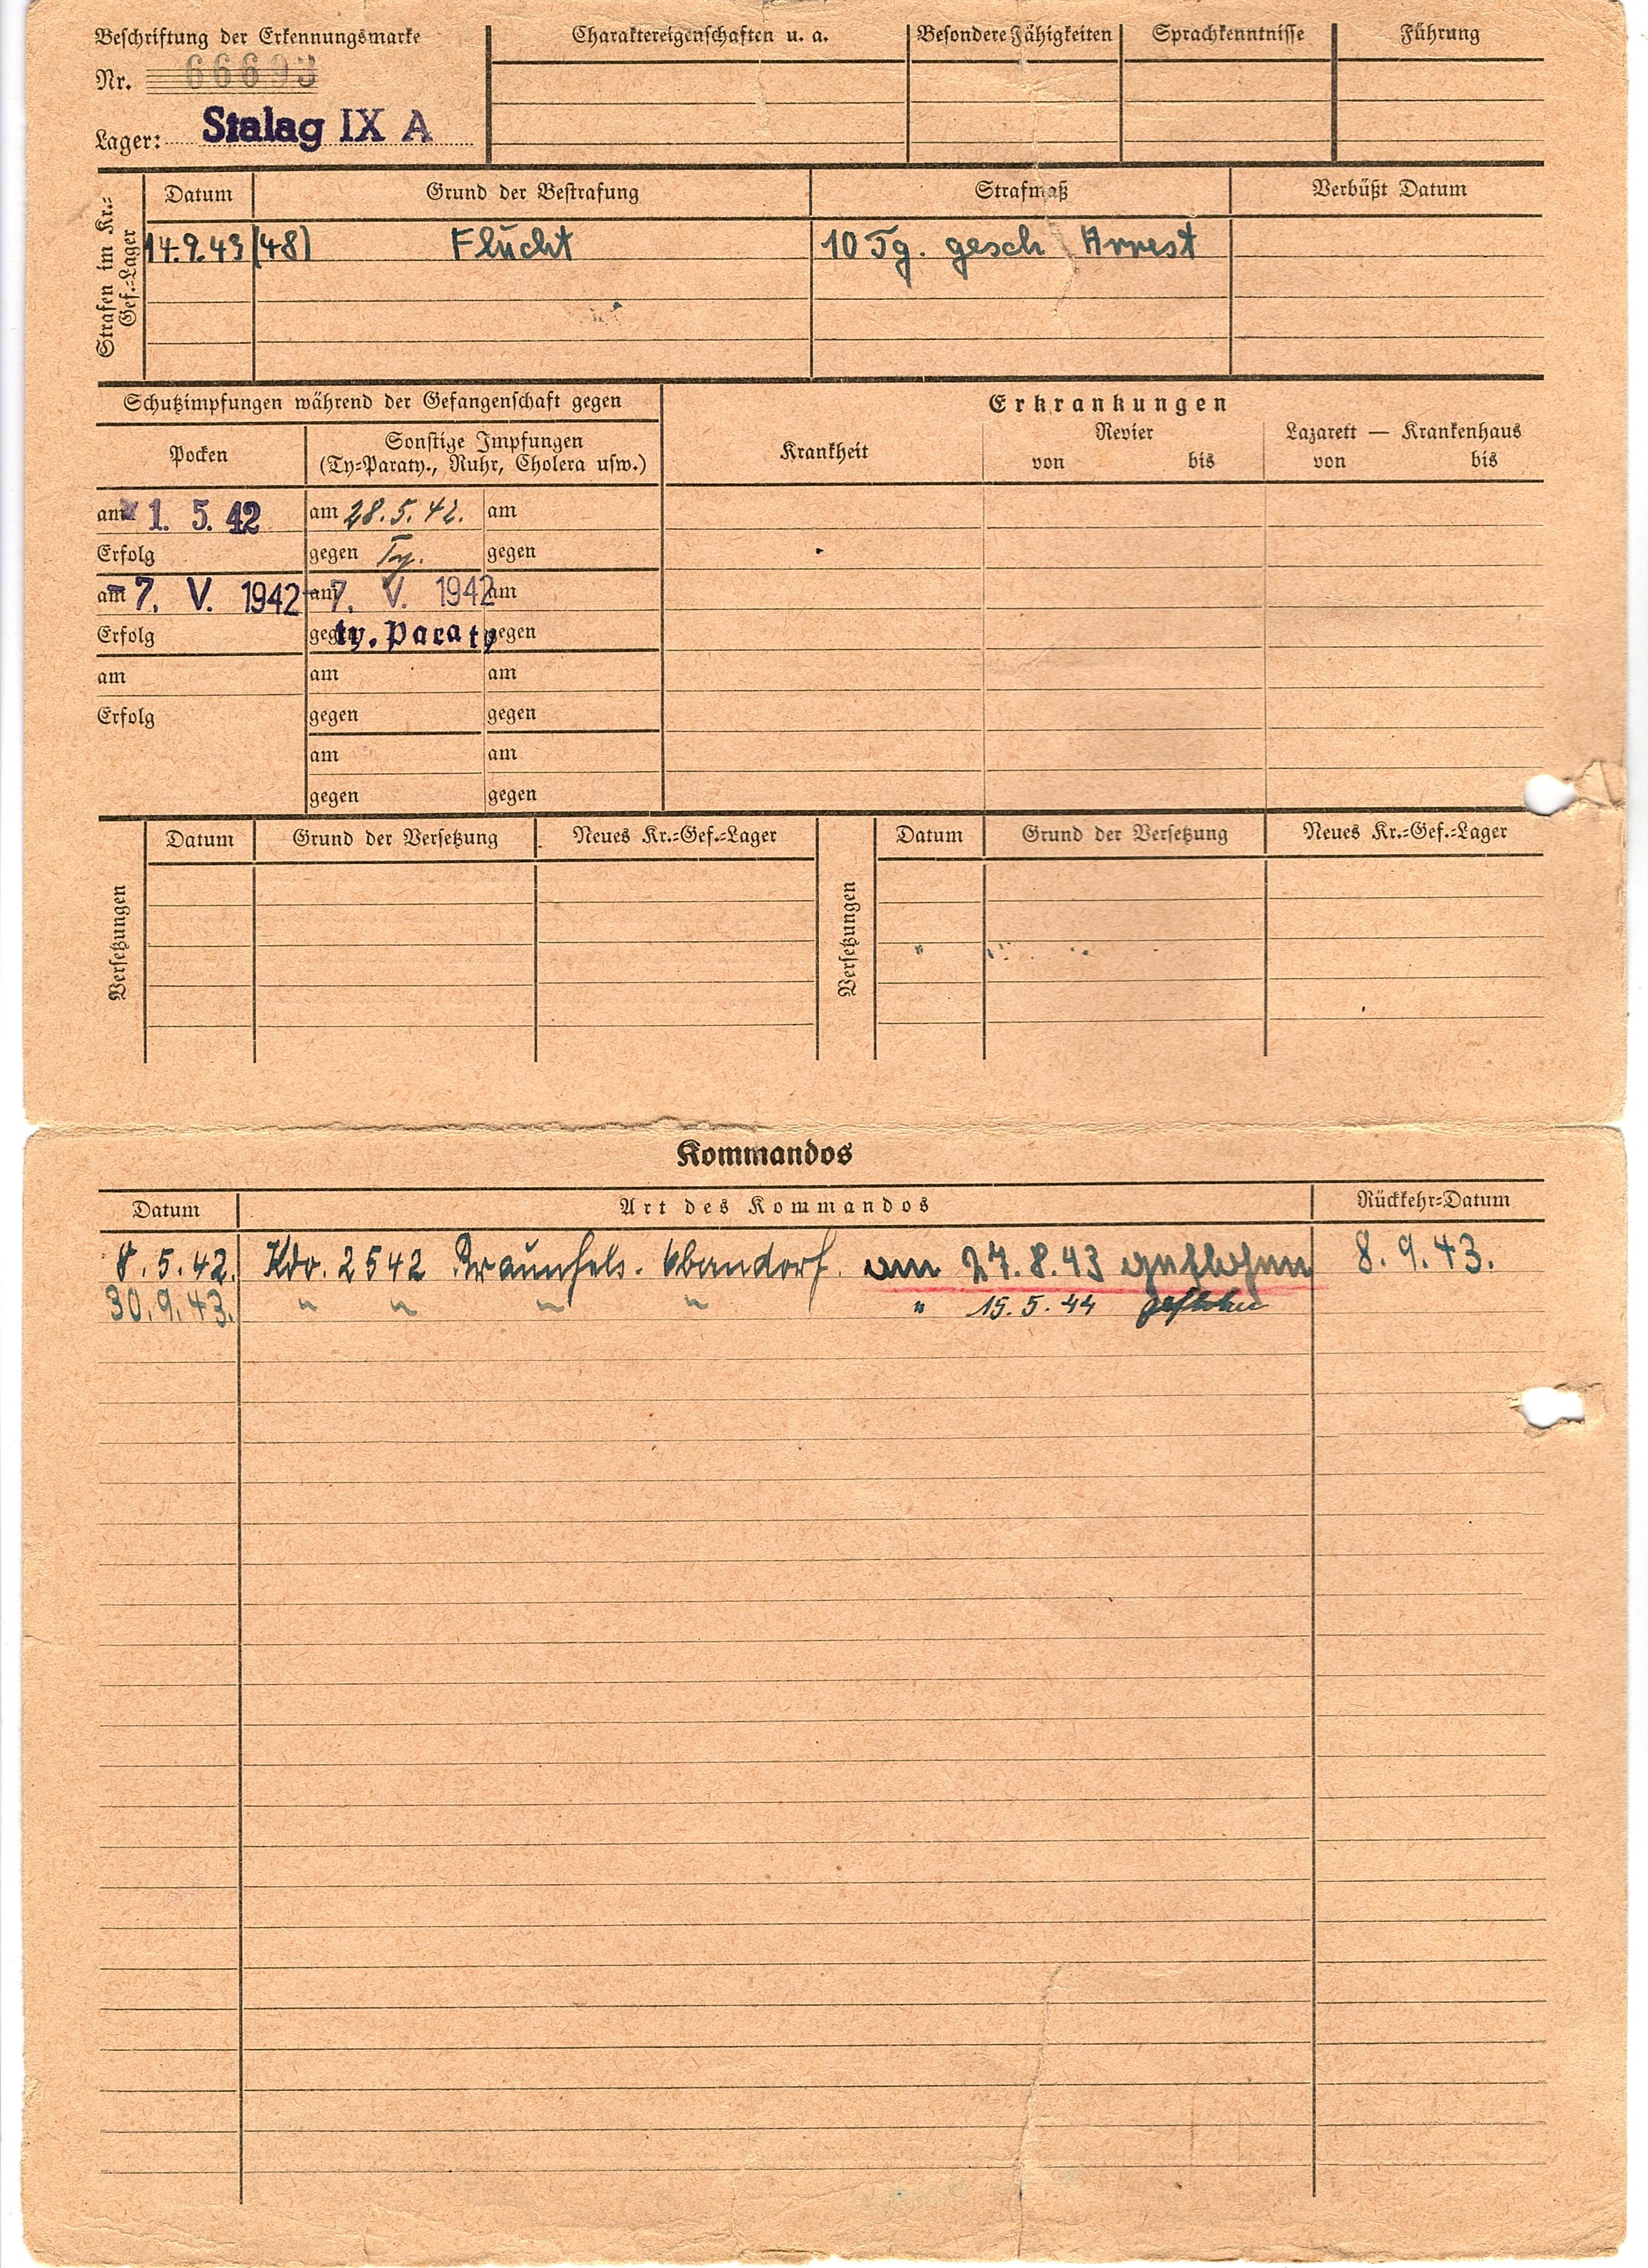 Beschriftung der Erkennungsmarke
Nr. 66693
Lager: Stalag IX A
Charaktereigenschaften u. a.
Besondere Fähigkeiten
Sprachkenntnisse
Führung
Strafen im Kr.=Gef.=Lager
Datum Grund der Bestrafung Strafmaß Verbüßt Datum
14.9.43 (48) Flucht 10 Tg. gesch Arrest
Schutzimpfungen während der Gefangenschaft gegen
Pocken
Sonstige Impfungen
(Ty=Paraty., Ruhr, Cholera usw.)
am 1. 5. 42 am 28.5.42. am
Erfolg gegen Ty. gegen
am 7. V. 1942 am 7. V. 1942 am
Erfolg gegen ty. Paraty gegen
am am am
Erfolg gegen gegen
am am
gegen gegen
Erkrankungen
Krankheit
Revier
von bis
Lazarett — Krankenhaus
von bis
Versetzungen
Datum Grund der Versetzung Neues Kr.=Gef.=Lager
Versetzungen
Datum Grund der Versetzung Neues Kr.=Gef.=Lager
Kommandos
Datum Art des Kommandos Rückkehr=Datum
8.5.42. Kdo. 2542 Braunfels. Oberndorf. am 27.8.43 geflohen 8.9.43.
30.9.43. " " " " " 15.5.44 geflohen